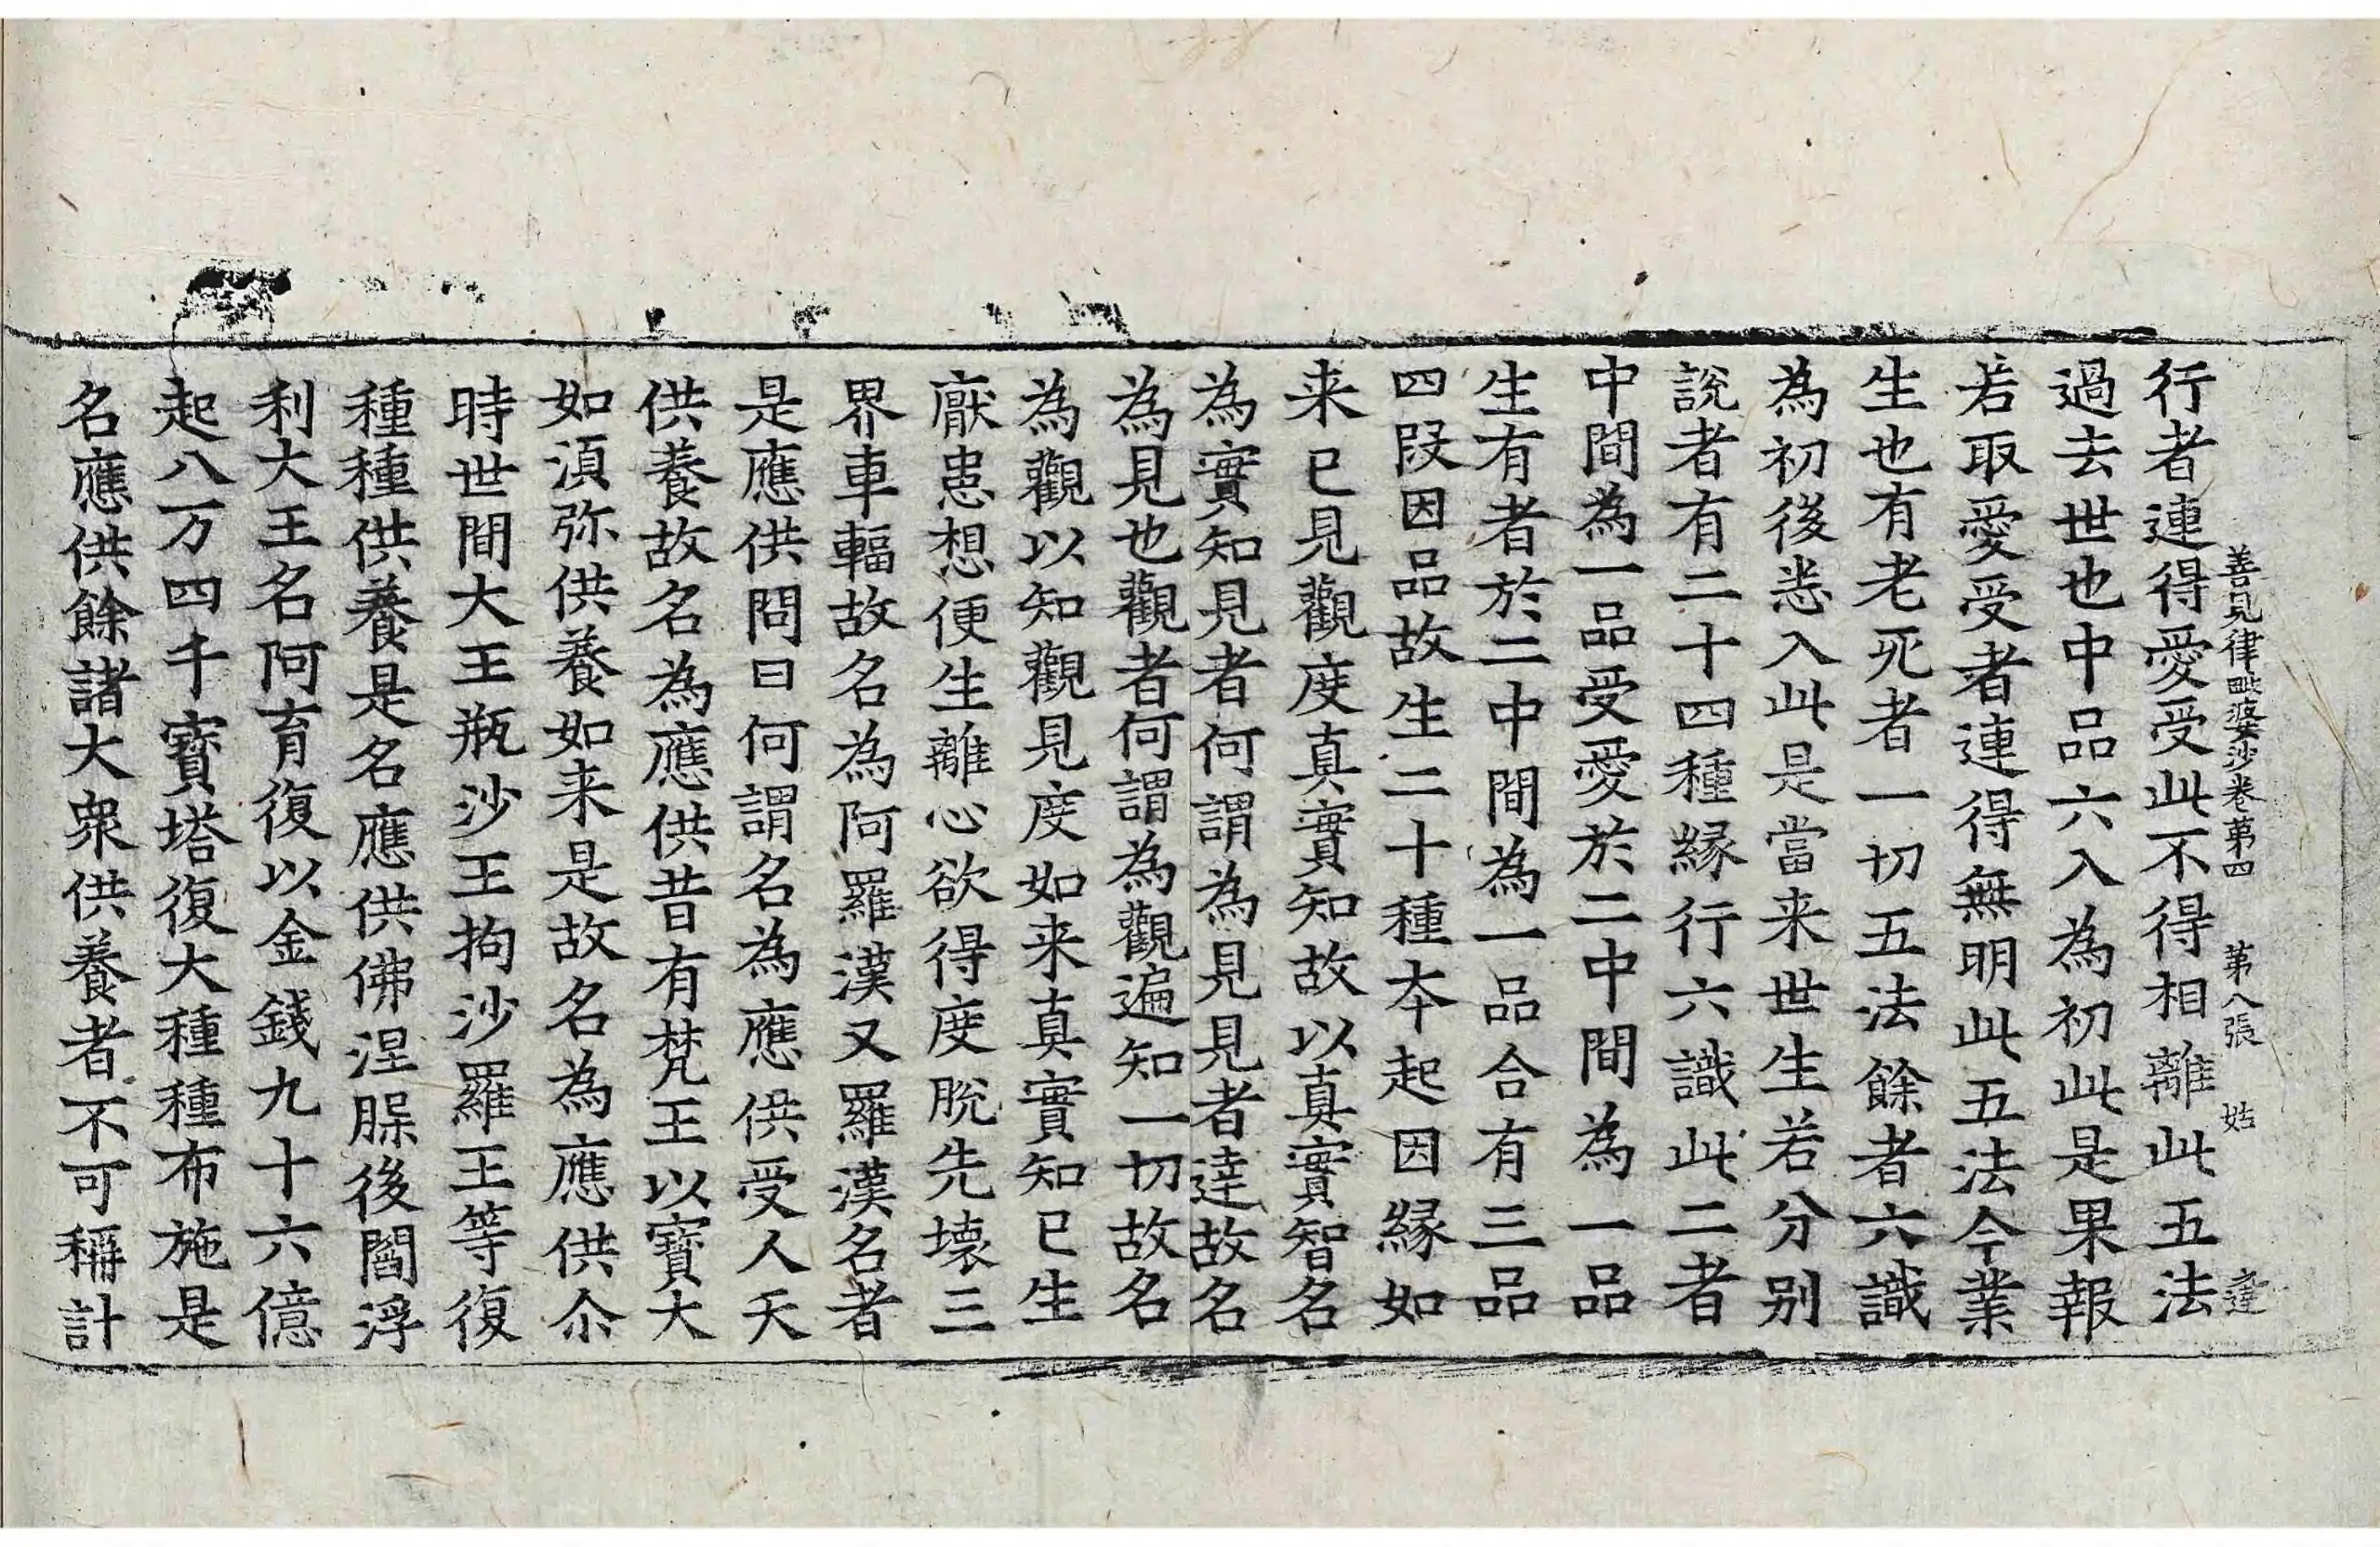 善見律毗婆沙卷第四　第八張　姑　達
行者連得愛受此不得相離此五法
過去世也中品六入為初此是果報
若取愛受者連得無明此五法今業
生也有老死者一切五法餘者六識
為初後悉入此是當来世生若分別
說者有二十四種緣行六識此二者
中間為一品受愛於二中間為一品
生有者於二中間為一品合有三品
四段因品故生二十種本起因緣如
来已見觀度真實知故以真實智名
為實知見者何謂為見見者達故名
為見也觀者何謂為觀遍知一切故名
為觀以知觀見度如来真實知已生
厭患想便生離心欲得度脫先壞三
界車輻故名為阿羅漢又羅漢名者
是應供問曰何謂名為應供受人天
供養故名為應供昔有梵王以寶大
如湏弥供養如来是故名為應供尒
時世間大王瓶沙王拘沙羅王等復
種種供養是名應供佛涅槃後閻浮
利大王名阿育復以金錢九十六億
起八万四千寶塔復大種種布施是
名應供餘諸大衆供養者不可稱計